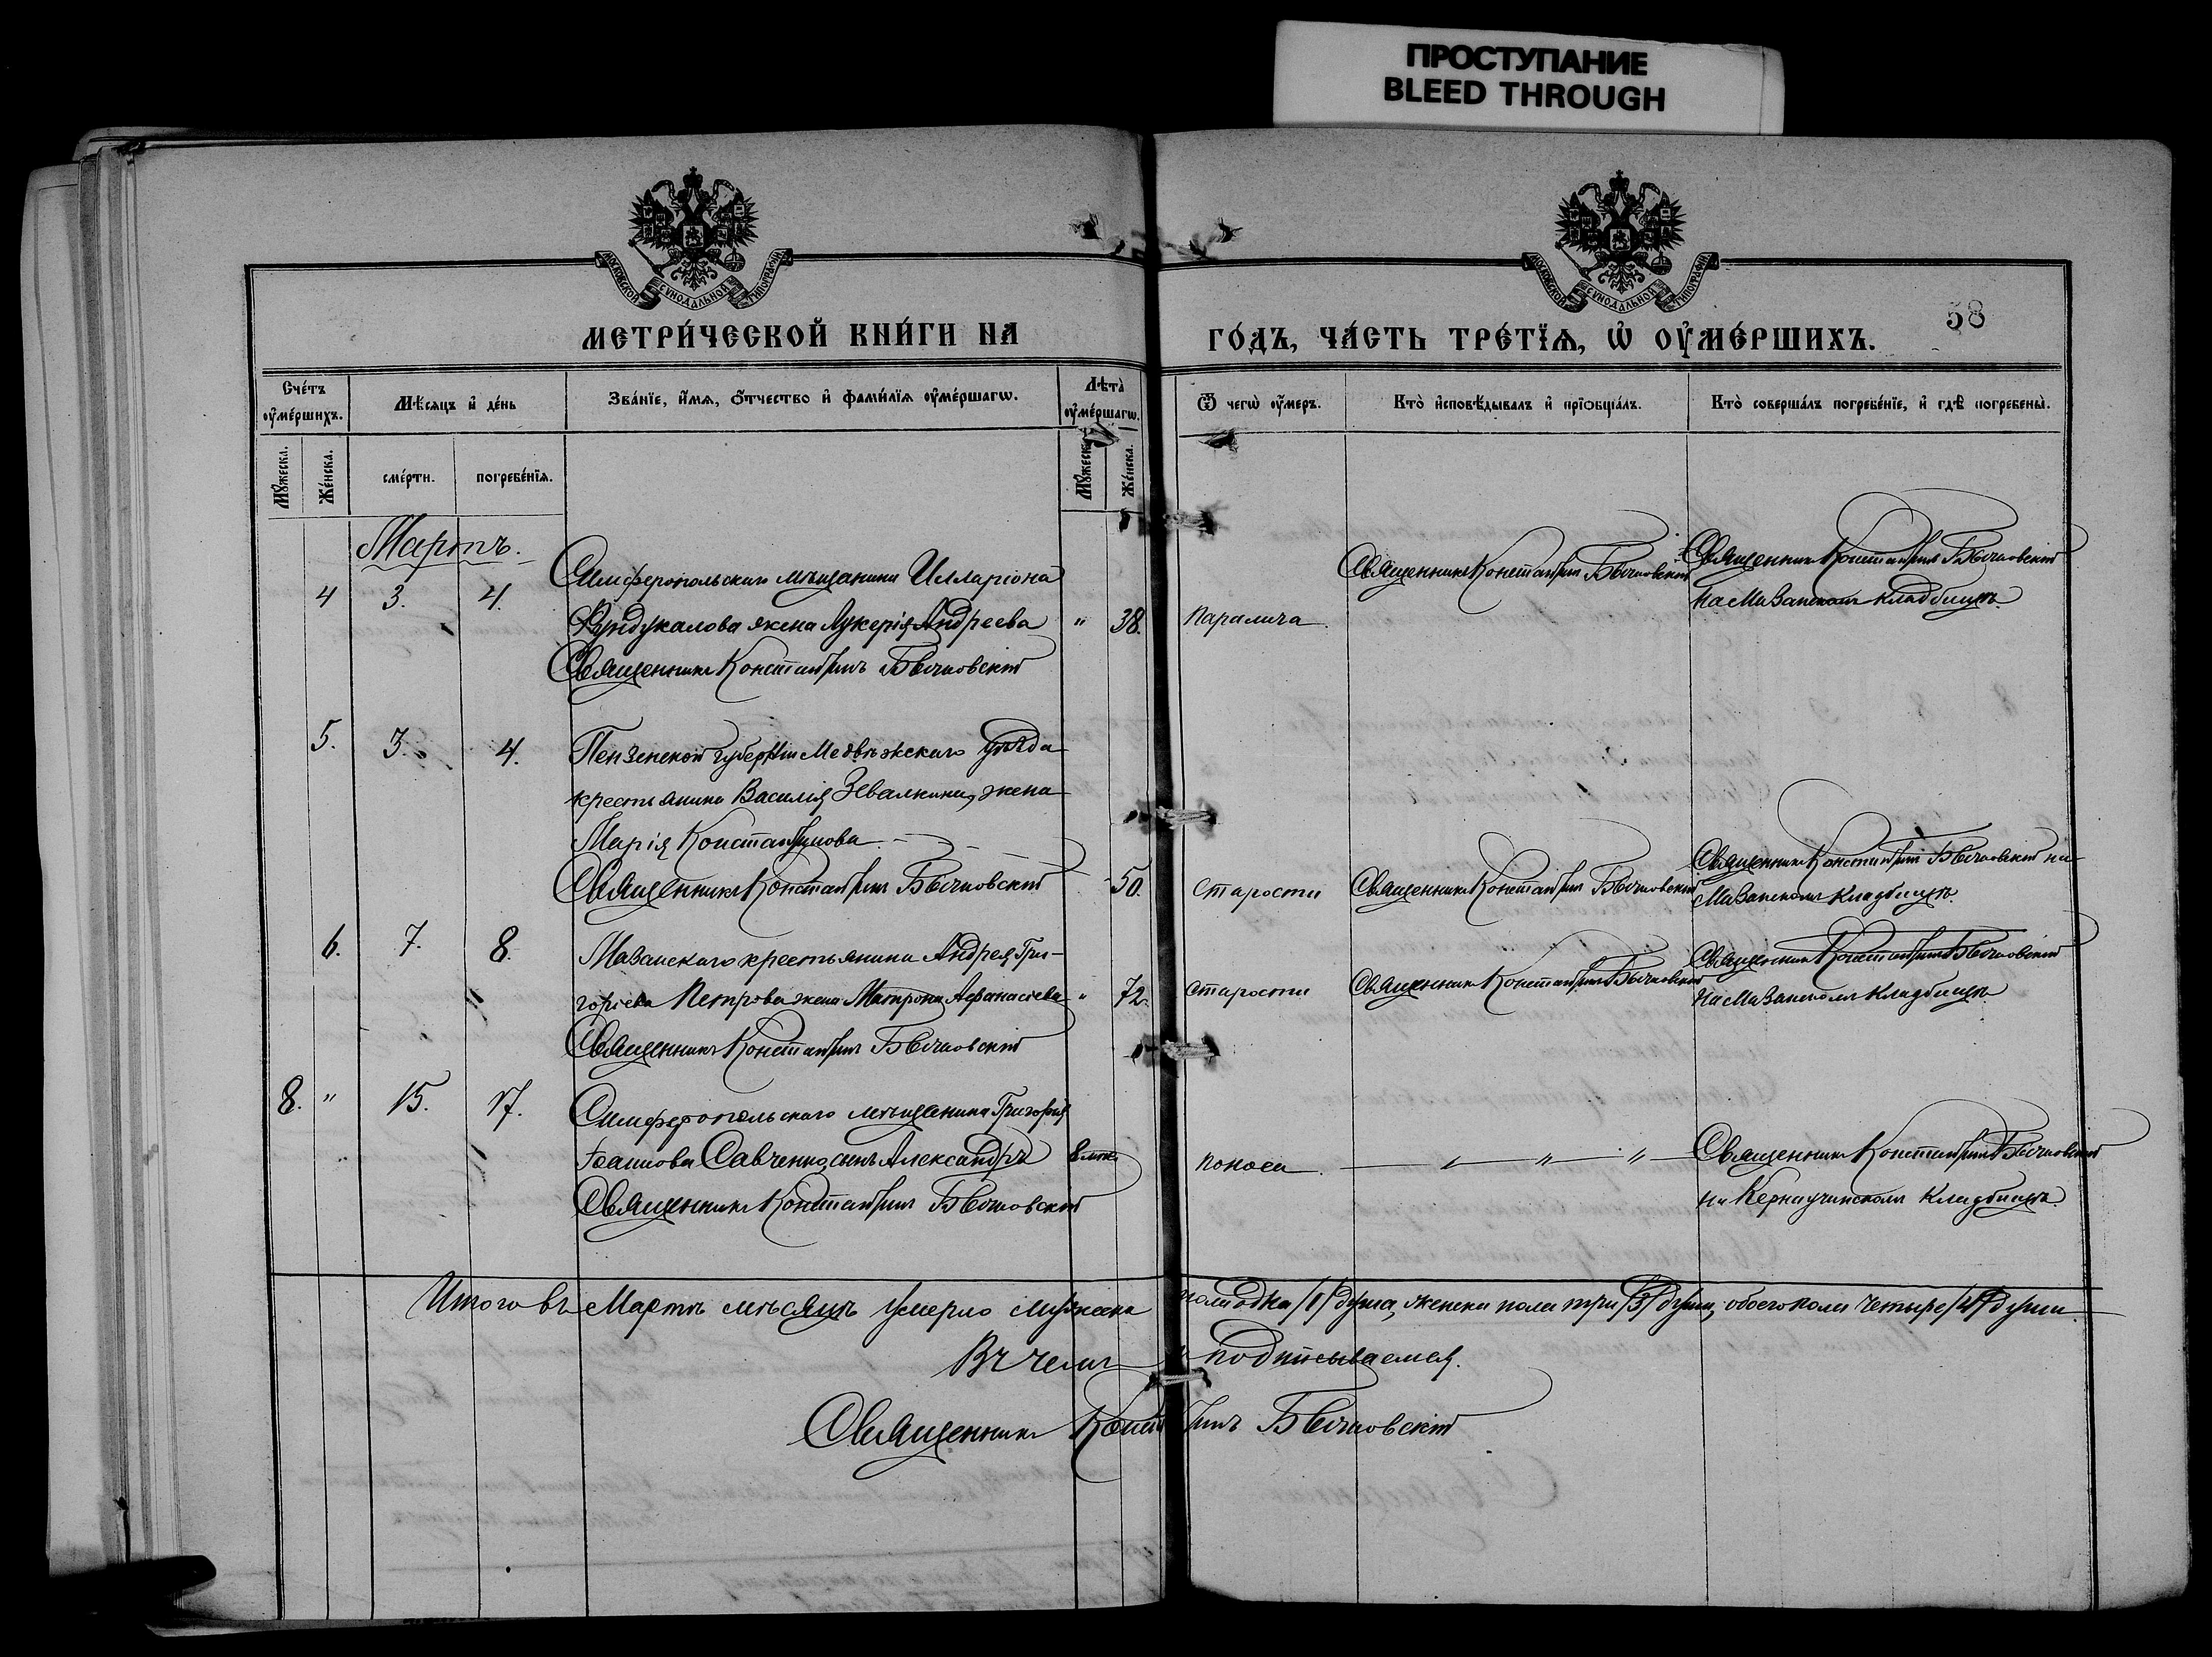 ПРОСТУПАНИЕ
BLEED THROUGH
МОСКОВСКОЙ СѴНОДАЛЬНОЙ ТИПОГРАФІИ
МОСКОВСКОЙ СѴНОДАЛЬНОЙ ТИПОГРАФІИ
МЕТРИ́ЧЕСКОЙ КНИ́ГИ НА ГО́ДЪ, ЧА́СТЬ ТРЕ́ТЇѦ, Ѡ҆ ОУ҆МЕ́РШИХЪ.
58
Сче́тъ оу҆ме́ршихъ.
Мѣ́сѧцъ и҆ де́нь
Зва́нїе, и҆́мѧ, ѻ҆́тчество и҆ фами́лїѧ оу҆ме́ршагѡ.
Лѣта̀ оу҆ме́ршагѡ.
Ѿ чегѡ̀ оу҆́меръ.
Кто̀ и҆сповѣ́дывалъ и҆ прїѡбща́лъ.
Кто̀ соверша́лъ погребе́нїе, и҆ гдѣ̀ погребены̀.
Мꙋ́жеска.
Же́нска.
сме́рти.
погребе́нїѧ.
Мꙋ́жеска.
Же́нска.
Мартъ.
4 3. 4. Симферопольскаго мѣщанина Илларіона
Фундукалова жена Лукерія Андреева " 38. Паралича.
Священникъ Константинъ Бычковскій
Священникъ Константинъ Бычковскій
Священникъ Константинъ Бычковскій
на Мазанскомъ кладбищѣ.
5. 3. 4. Пензенской губерніи Медвѣжскаго уѣзда
крестьянина Василія Зевалкина, жена
Марія Константинова
Священникъ Константинъ Бычковскій 50. Старости Священникъ Константинъ Бычковскій
Священникъ Константинъ Бычковскій на
Мазанскомъ кладбищѣ.
6. 7. 8. Мазанскаго крестьянина Андрея Гри-
горіева Петрова жена Матрона Афанасіева " 72. Старости Священникъ Константинъ Бычковскій
Священникъ Константинъ Бычковскій
Священникъ Константинъ Бычковскій
на Мазанскомъ кладбищѣ.
8. " 15. 17. Симферопольскаго мѣщанина Григорія
Іоаннова Савченко, сынъ Александръ Поноса. " " "
Священникъ Константинъ Бычковскій
Священникъ Константинъ Бычковскій
на Кернаучинскомъ кладбищѣ.
Итого въ Мартѣ мѣсяцѣ умерло мужеска пола одна /1/ душа, женска пола три /3/ души, обоего пола четыре /4/ души.
Въ чемъ и подписываемся.
Священникъ Константинъ Бычковскій